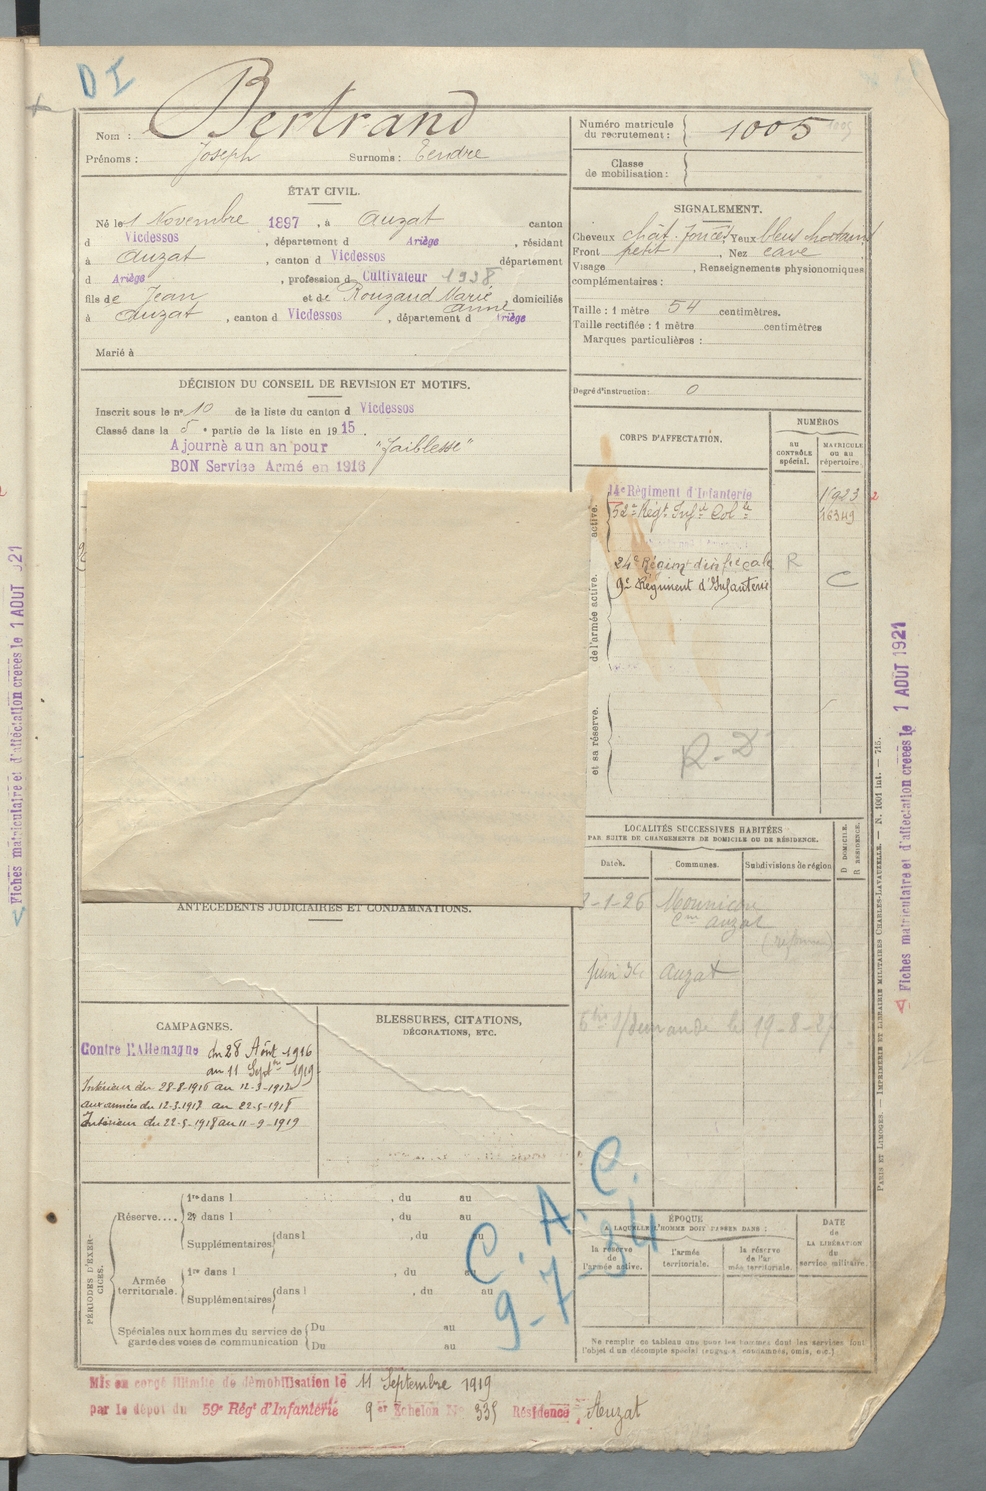 D I
Nom : Bertrand
Prénoms : Joseph Surnoms : Tendre
ÉTAT CIVIL.
Né le 1 Novembre 1897, à Auzat canton
d Vicdessos, département d Ariège, résidant
à Auzat, canton d Vicdessos département
d Ariège, profession d Cultivateur 1938
fils de Jean et de Rouzaud Marie Anne, domiciliés
à Auzat, canton d Vicdessos, département d Ariège
Marié à
DÉCISION DU CONSEIL DE REVISION ET MOTIFS.
Inscrit sous le n° 10 de la liste du canton d Vicdessos
Classé dans la 5e partie de la liste en 1915.
Ajourné a un an pour "faiblesse"
BON Service Armé en 1916
ANTÉCÉDENTS JUDICIAIRES ET CONDAMNATIONS.
CAMPAGNES.
Contre l'Allemagne du 28 Août 1916
au 11 Septbre 1919
Intérieur du 28-8-1916 au 12-3-1917
aux armées du 12-3-1917 au 22-5-1918
Intérieur du 22-5-1918 au 11-9-1919
BLESSURES, CITATIONS,
DÉCORATIONS, ETC.
PÉRIODES D'EXERCICES.
Réserve....
1re dans l , du au
2e dans l , du au
Supplémentaires dans l , du au
Armée territoriale.
1re dans l , du au
Supplémentaires dans l , du au
Spéciales aux hommes du service de garde des voies de communication
Du au
Du au
Mis en congé illimité de démobilisation le 11 Septembre 1919
par le dépôt du 59e Régt d'Infanterie 9er Echelon No 335 Résidence Auzat
Numéro matricule du recrutement : 1005
1005
Classe de mobilisation :
SIGNALEMENT.
Cheveux chât. foncés Yeux bleus
Front petit, Nez cave
Visage , Renseignements physionomiques
complémentaires :
Taille : 1 mètre 54 centimètres.
Taille rectifiée : 1 mètre centimètres
Marques particulières :
Degré d'instruction : 0
CORPS D'AFFECTATION.
NUMÉROS
AU CONTRÔLE spécial.
MATRICULE OU AU répertoire.
14e Régiment d'Infanterie 1923 2
52e Régt Infie Colle 16349
24e Régimt d'infie cale R
9e Régiment d'Infanterie C
active.
de l'armée active.
et sa réserve.
R-D
LOCALITÉS SUCCESSIVES HABITÉES
PAR SUITE DE CHANGEMENTS DE DOMICILE OU DE RÉSIDENCE.
Dates. Communes. Subdivisions de région
D DOMICILE.
R RÉSIDENCE.
3-1-26 Mounicou
Cne Auzat
Auzat
demande le 19-8-27
C. A. C.
9-7-34
ÉPOQUE
A LAQUELLE L'HOMME DOIT PASSER DANS :
la réserve de l'armée active.
l'armée territoriale.
la réserve de l'armée territoriale.
DATE de LA LIBÉRATION du service militaire.
Ne remplir ce tableau que pour les hommes dont les services font
l'objet d'un décompte spécial (engagés, condamnés, omis, etc.)
PARIS ET LIMOGES. — IMPRIMERIE ET LIBRAIRIE MILITAIRES CHARLES-LAVAUZELLE. — N. 1001 int. — 715.
Fiches matriculaire et d'affectation créées le 1 AOUT 1921
Fiches matriculaire et d'affectation créées le 1 AOUT 921